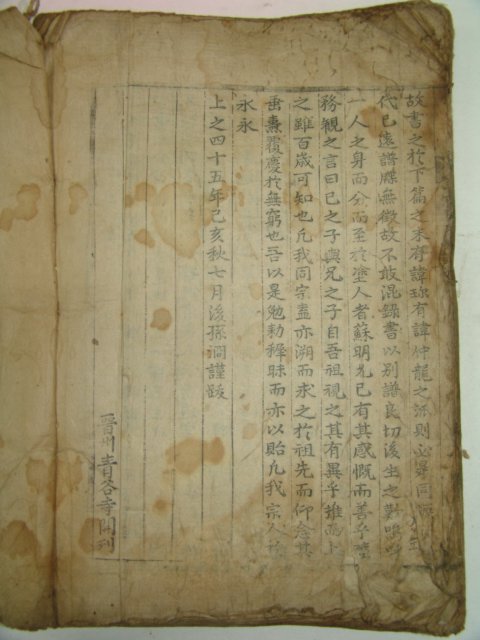 故書之於下篇之末存諱珎有諱仲龍之派則必是同
代已遠譜牒無徵故不敢混錄書以別譜良切後生之
一人之身而分而至於塗人者蘇明允已有其感慨而善乎陸
務觀之言曰已之子與兄之子自吾祖視之其有異乎雖而上
之雖百歲可知也凡我同宗盍亦溯而求之於祖先而仰念其
垂裕覆慶於無窮也吾以是勉勑穉昧而亦以貽凡我宗人於
永永
上之四十五年己亥秋七月後孫澗謹跋
晋州青谷寺開刊